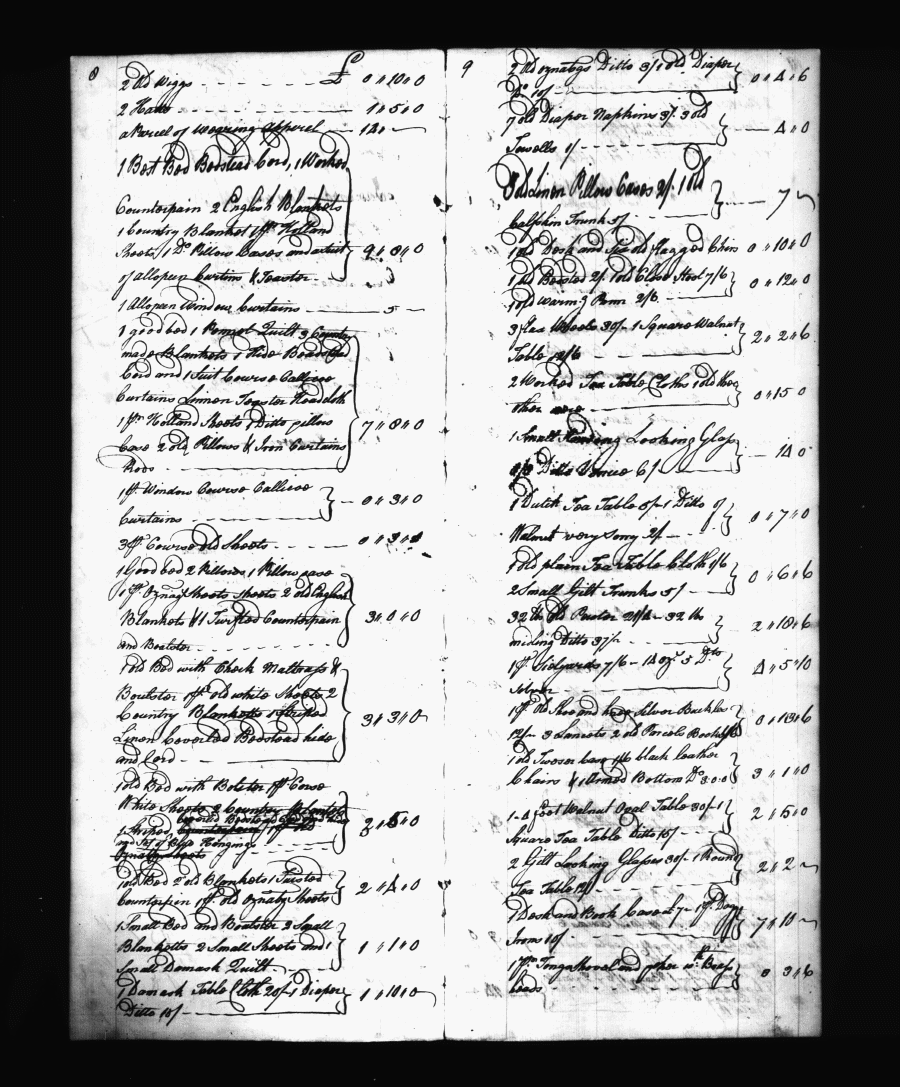 8
2 Old Wiggs - - - - - £ 0 " 10 " 0
2 Hatts - - - - 1 " 5 " 0
a Parcel of Wearing Apparel - 12 " -
1 Best Bed Bedstead Cord, 1 Worked
Counterpain 2 English Blankets
1 Country Blanket 1 pr. Holland
Sheets / 1 Do. Pillow Cases and a suit 9 " 8 " 0
of allopeen Curtins & Teaster -
1 Allopeen Window Curtains - - - - 5 -
1 good bed 1 Quilt 3 Country
made Blankets 1 Hide Bedstead
Cord and 1 Suit Course Callicoe
Curtains Linnen Teaster Headcloth
1 pr. Holland Sheets 1 Ditto pillow 7 " 8 " 0
Case 2 old Pillows & Iron Curtains
Rods - - -
1 pr. Window Course Callicoe
Curtains - - - - 0 " 3 " 0
3 pr. Course old Sheets - - - - 0 " 3 "
1 Good bed 2 Pillows 1 Pillow case
1 pr. Oznabgs Sheets 2 old English
Blankets & 1 Twisted Counterpain 3 " 0 " 0
and Bolster - - -
1 old Bed with Check Mattrass &
Boulster 1 pr. old white Sheets 2
Country Blanketts 1 Striped 3 " 3 " 0
Linen Coverled Bedstead hide
and Cord - - -
1 old Bed with Bolster 1 pr Corse
White Sheets 2 Country Blanketts
1 Striped 2 " 5 " 0
and Set of Blue Hangings
1 old Bed 2 old Blankets 1 Twisted
Counterpin 1 pr. old oznabg Sheets 2 " 4 " 0
1 Small Bed and Boulster 2 Small
Blanketts 2 Small Sheets and 1 1 " 1 " 0
Small Damask Quilt -
1 Damask Table Cloth 20/- 1 Diaper
Ditto 10/ - - - 1 " 10 " 0
9
2 Old oznabgs Ditto 3/ 1 old Diaper
Do. 1/ - - - 0 " 4 " 6
7 old Diaper Napkins 3/ 3 old
Towells 1/ - - - 4 " 0
Linen Pillow Cases 2/. 1 old
Calfskin Trunk 5/ - - - 7 -
1 old Desk and old flagged Chair 0 " 10 " 0
1 old Bedsted 2/. 1 old Close Stool 7/6
1 old Warmg Pann 2/6 - - 0 " 12 " 0
3 flax Wheels 30/- 1 Square Walnut
Table 12/6 - - 2 " 2 " 6
2 Worked Tea Table Cloths 1 old
other - - - 0 " 15 " 0
1 Small Standing Looking Glass
Ditto 6/ - - 14 " 0
1 Dutch Tea Table 5/- 1 Ditto of
Walnut very Sorry 2/ - - 0 " 7 " 0
1 old plain Tea Table Cloth 1/6
2 Small Gilt Trunks 5/ - - 0 " 6 " 6
32 lb Old Pewter - 32 lb
midling Ditto 37/ - - - 2 " 18 " 6
7/6 - 14 oz. 5 Dwt
Silver - - - 4 " 5 " 10
1 pr. Old Shoe and knee Silver Buckles
3 Lancets 2 old Parcels Books 0 " 18 " 6
1 old Tweser case 1/6 black leather
Chairs & 1 Armed Bottom Do. 3 " 1 " 0
1-4 foot Walnut Oval Table 30/- 1
Square Tea Table Ditto 15/ - 2 " 5 " 0
2 Gilt Looking Glasses 30/- 1 Round
Tea Table 12/ - - 2 " 2 -
1 Desk and Book Case £7- 1 pr. Dogg
Irons 10/ - - - 7 " 10 -
1 pr. Tongs Shovel and poker wth. Brass
heads - - - 0 3 " 6